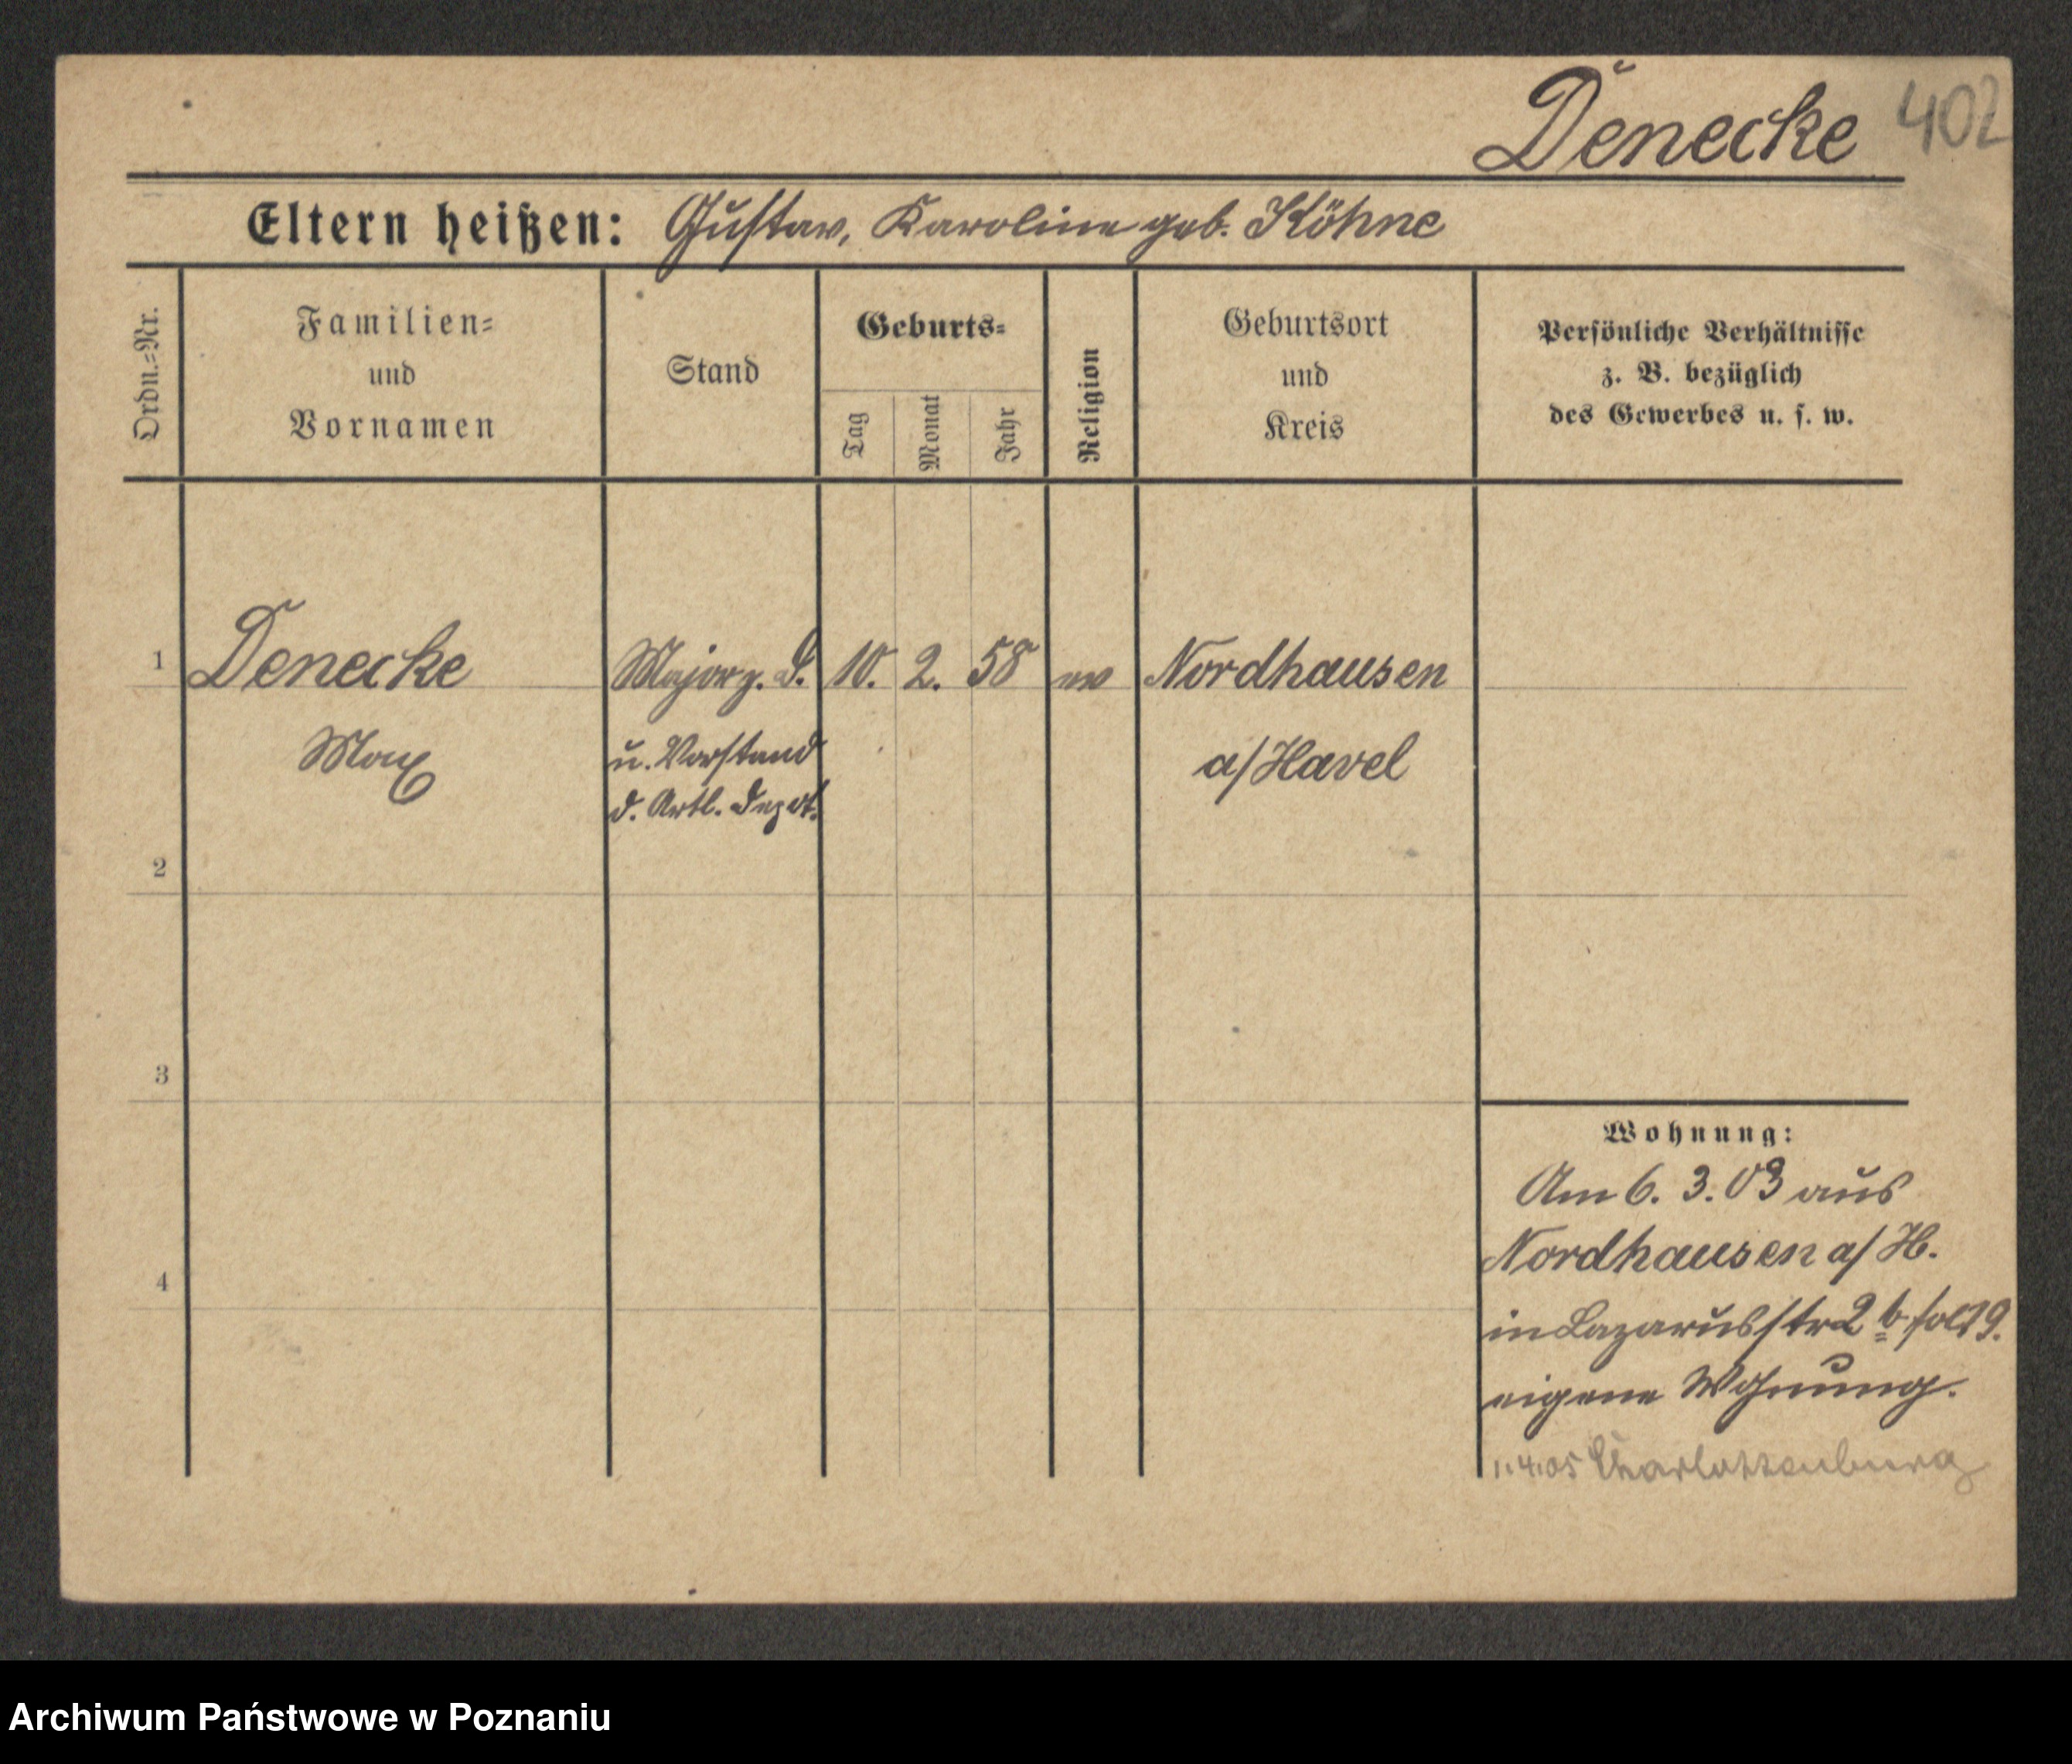 Denecke 402
Eltern heißen: Gustav, Karoline geb. Köhne
Ordn.-Nr.
Familien-
und
Vornamen
Stand
Geburts-
Tag
Monat
Jahr
Religion
Geburtsort
und
Kreis
Persönliche Verhältnisse
z. B. bezüglich
des Gewerbes u. s. w.
1 Denecke Major z. D. 10. 2. 58 ev Nordhausen
Max u. Vorstand a/Havel
d. Artl. Depot.
2
3
4
Wohnung:
Am 6. 3. 03 aus
Nordhausen a/H.
in Lazarusstr 2 b fol 19.
eigene Wohnung.
1.4.05 Charlottenburg
Archiwum Państwowe w Poznaniu